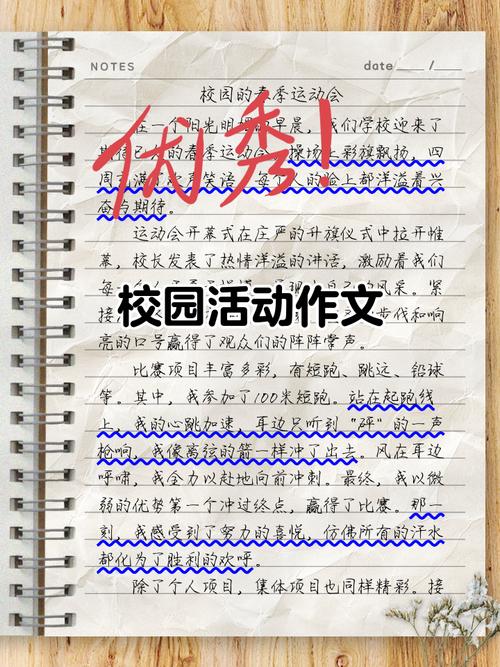 NOTES
date____/__
校园的春季运动会
优秀!
在一个阳光明媚的早晨，我们学校迎来了
期待已久的春季运动会。操场上彩旗飘扬，四
周充满了欢声笑语，每个人的脸上都洋溢着兴
奋与期待。
运动会开幕式在庄严的升旗仪式中拉开帷
幕，校长发表了热情洋溢的讲话，激励着我们
每 的风采。紧
接 步伐和响
校园活动作文
亮的口号赢得了观众们的阵阵掌声。
比赛项目丰富多彩，有短跑、跳远、铅球
等。其中，我参加了100米短跑。站在起跑线
上，我的心跳加速，耳边只听到“砰”的一声
枪响，我像离弦的箭一样冲了出去。风在耳边
呼啸，我全力以赴地向前冲刺。最终，我以微
弱的优势第一个冲过终点，赢得了比赛。那一
刻，我感受到了努力的喜悦，仿佛所有的汗水
都化为了胜利的欢呼。
除了个人项目，集体项目也同样精彩。接